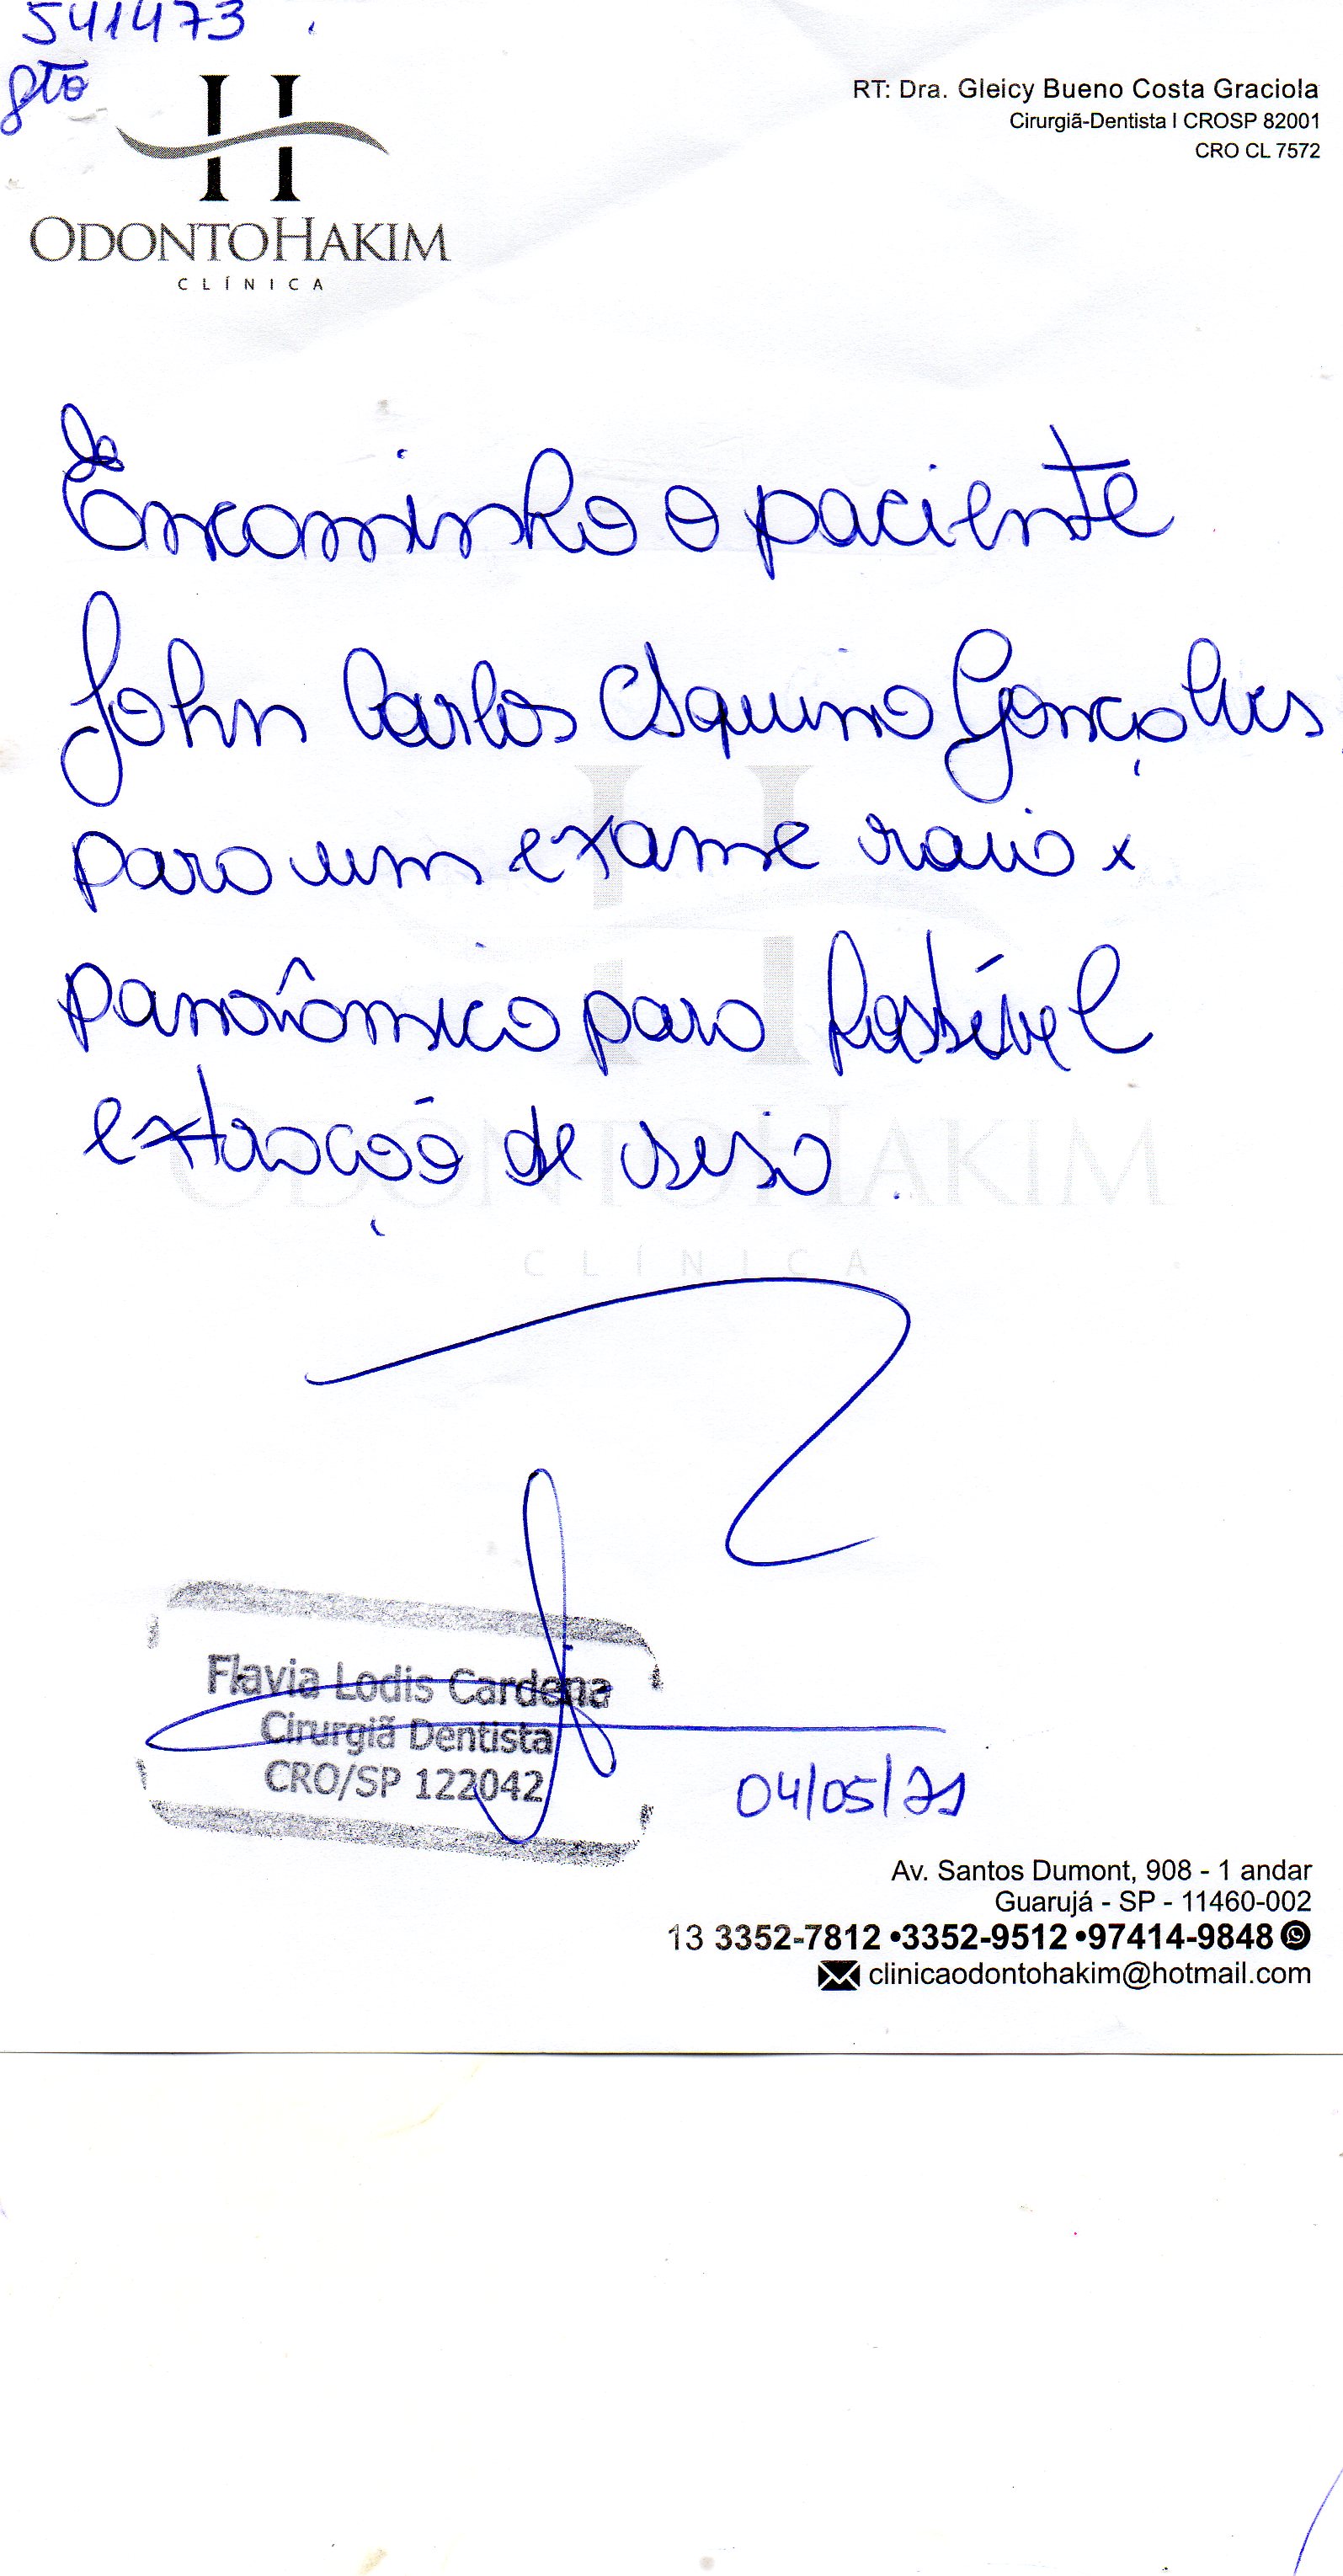 541473
gto
H
ODONTOHAKIM
CLÍNICA
RT: Dra. Gleicy Bueno Costa Graciola
Cirurgiã-Dentista I CROSP 82001
CRO CL 7572
Encaminho o paciente
John Carlos Aquino Gonçalves
para um exame raio x
panorâmico para possível
extração de siso
ODONTOHAKIM
CLÍNICA
Flavia Lodis Cardena
Cirurgiã Dentista
CRO/SP 122042
04/05/21
Av. Santos Dumont, 908 - 1 andar
Guarujá - SP - 11460-002
13 3352-7812 •3352-9512 •97414-9848
clinicaodontohakim@hotmail.com